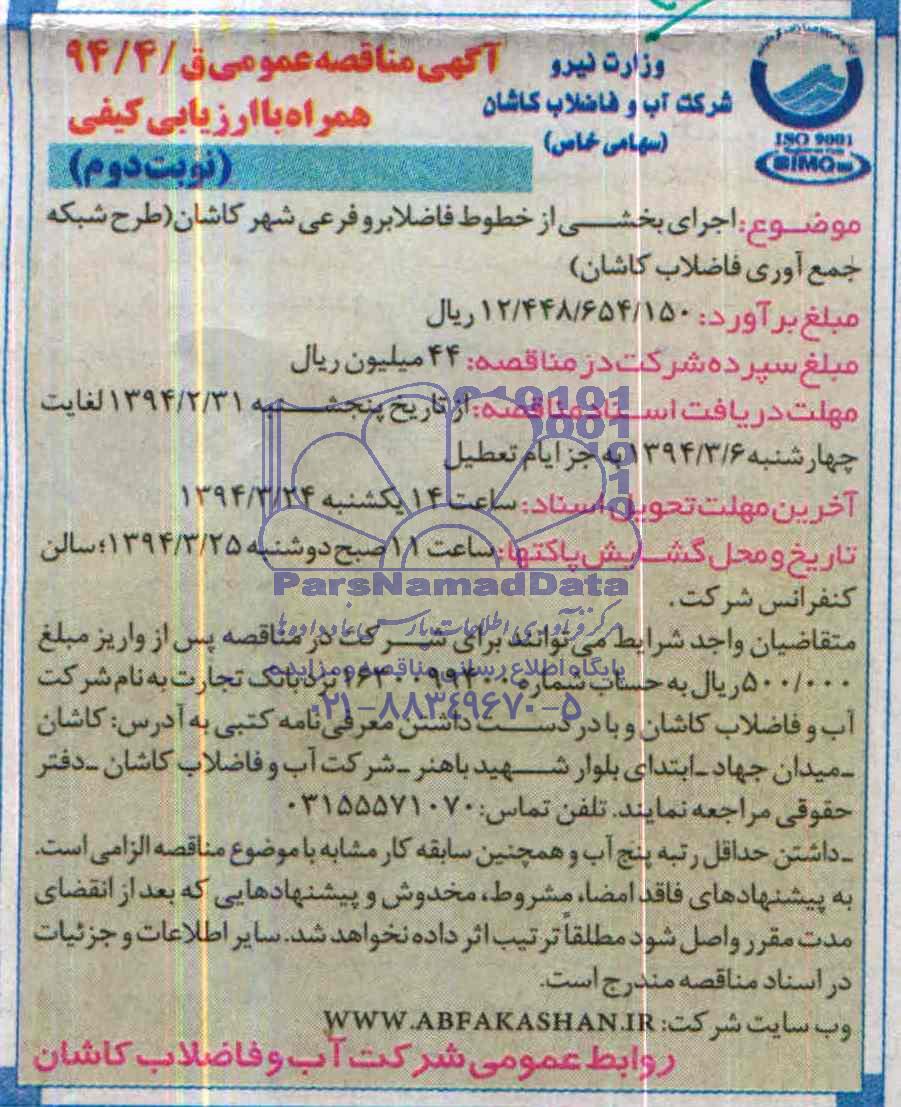 وزارت نیرو
شرکت آب و فاضلاب کاشان
(سهامی خاص)
ISO 9001
آگهی مناقصه عمومی ق/۹۴/۴
همراه با ارزیابی کیفی
(نوبت دوم)
موضوع: اجرای بخشی از خطوط فاضلابرو فرعی شهر کاشان (طرح شبکه
جمع آوری فاضلاب کاشان)
مبلغ برآورد: ۱۲/۴۴۸/۶۵۴/۱۵۰ ریال
مبلغ سپرده شرکت در مناقصه: ۴۴ میلیون ریال
مهلت دریافت اسناد مناقصه: از تاریخ پنجشنبه ۱۳۹۴/۲/۳۱ لغایت
چهارشنبه ۱۳۹۴/۳/۶ به جز ایام تعطیل
آخرین مهلت تحویل اسناد: ساعت ۱۴ یکشنبه ۱۳۹۴/۳/۲۴
تاریخ و محل گشایش پاکتها: ساعت ۱۱ صبح دوشنبه ۱۳۹۴/۳/۲۵؛ سالن
کنفرانس شرکت.
ParsNamadData
مرکز فرآوری اطلاعات پارس نماد داده‌ها
متقاضیان واجد شرایط می‌توانند برای شرکت در مناقصه پس از واریز مبلغ
پایگاه اطلاع رسانی مناقصه و مزایده
۵۰۰/۰۰۰ ریال به حساب شماره نزد بانک تجارت به نام شرکت
۰۲۱-۸۸۳۴۹۶۷۰-۵
آب و فاضلاب کاشان و با در دست داشتن معرفی نامه کتبی به آدرس: کاشان
ـ میدان جهاد ـ ابتدای بلوار شهید باهنر ـ شرکت آب و فاضلاب کاشان ـ دفتر
حقوقی مراجعه نمایند. تلفن تماس: ۰۳۱۵۵۵۷۱۰۷۰
ـ داشتن حداقل رتبه پنج آب و همچنین سابقه کار مشابه با موضوع مناقصه الزامی است.
به پیشنهادهای فاقد امضا، مشروط، مخدوش و پیشنهادهایی که بعد از انقضای
مدت مقرر واصل شود مطلقاً ترتیب اثر داده نخواهد شد. سایر اطلاعات و جزئیات
در اسناد مناقصه مندرج است.
وب سایت شرکت: WWW.ABFAKASHAN.IR
روابط عمومی شرکت آب و فاضلاب کاشان